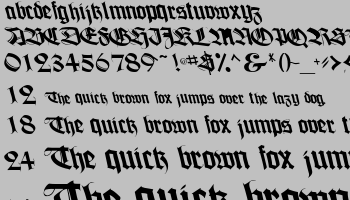 abcdefghijklmnopqrstuvwxyz
ABCDEFGHIJKLMNOPQRS
0123456789~!@#$%^&*()-_+=><
12 The quick brown fox jumps over the lazy dog
18 The quick brown fox jumps over the
24 The quick brown fox jum
The quick brown